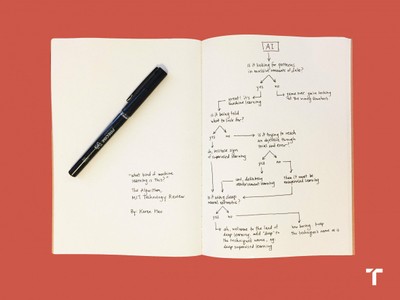 AI
Is it looking for patterns
in massive amounts of data?
yes no
great! it's
machine learning
game over. you're looking
for the wrong
Is it being told
what to look for?
yes no
Is it trying to reach
an objective through
trial and error?
of supervised learning
yes no
definitely
reinforcement learning
then it must be
unsupervised learning
Is it using deep
neural networks?
yes no
ok, welcome to the land of
deep learning. add "deep" to
the technique's name, eg.
deep supervised learning
the technique's name as is
"What kind of machine
learning is this?"
The Algorithm,
MIT Technology Review
By: Karen Hao